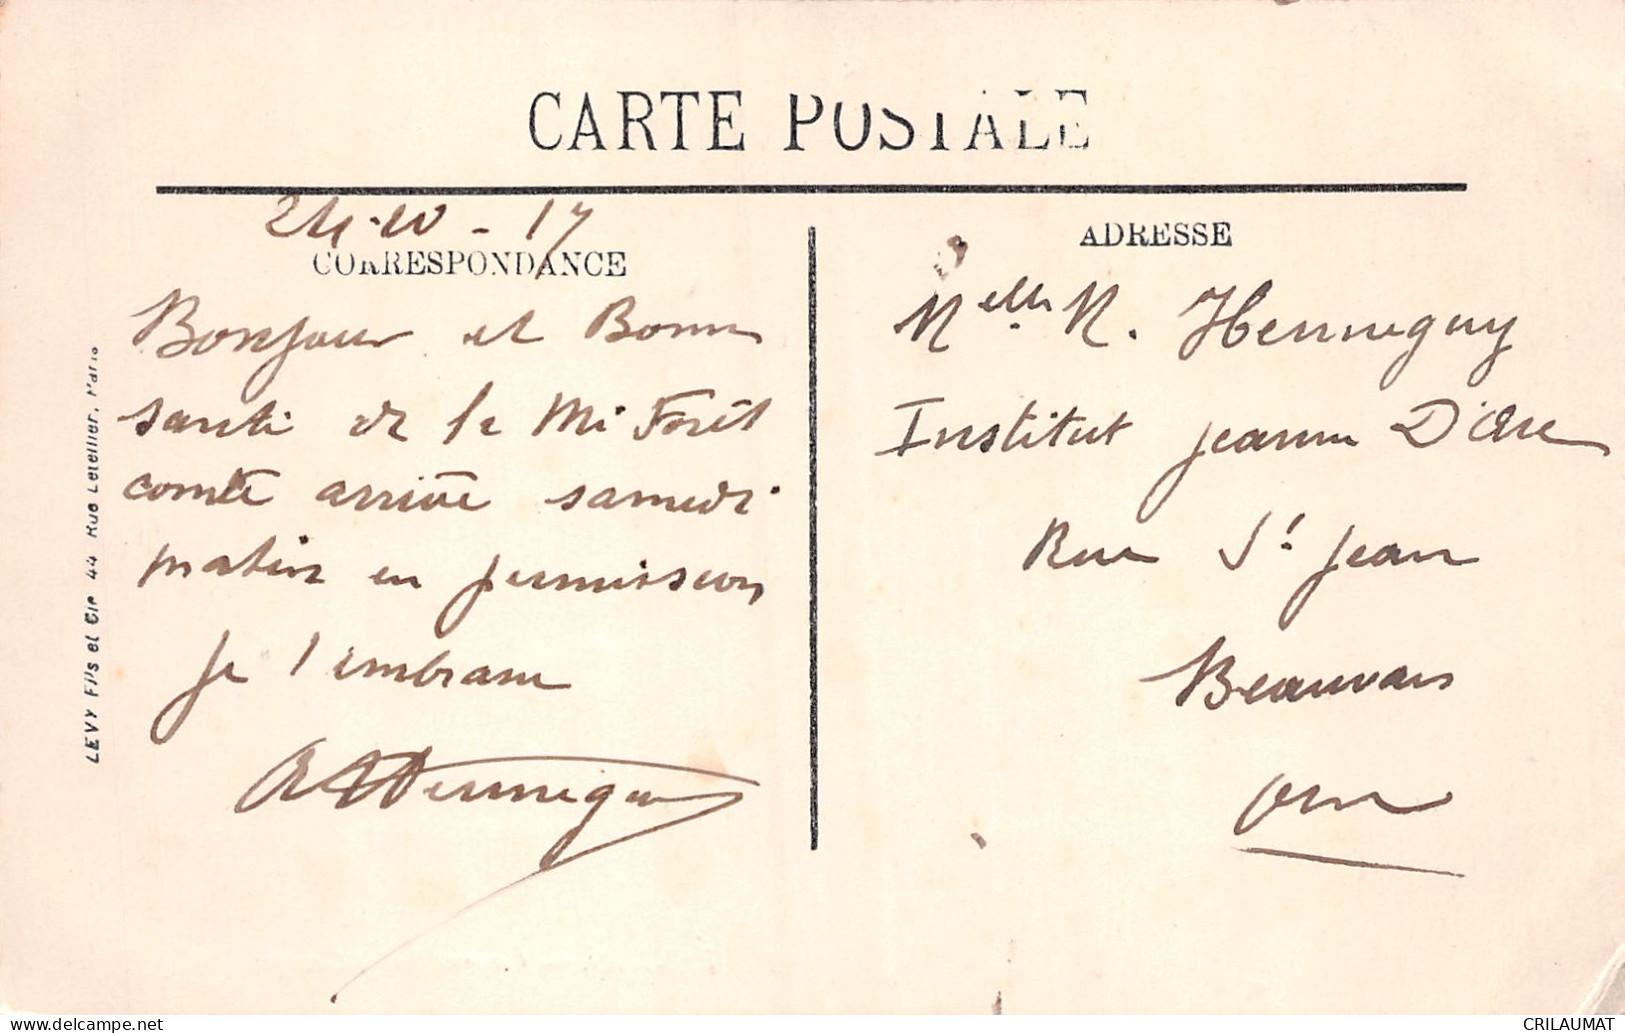 CARTE POSTALE
24-10-17
CORRESPONDANCE
Bonjour et Bonne
santé de la Mi Forêt
comte arrivé samedi
matin en permission
je l'embrasse
Henneguy
ADRESSE
Melle M. Henneguy
Institut Jeanne D'Arc
Rue St Jean
Beauvais
Oise
LEVY Fils et Cie 44 Rue Letellier, Paris
CRILAUMAT